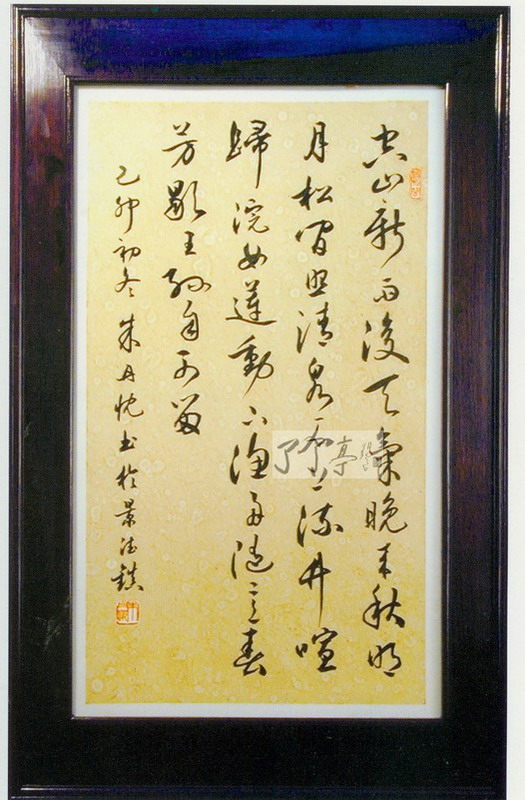 空山新雨後天氣晚來秋明
月松間照清泉石上流竹喧
歸浣女蓮動下漁舟隨意春
芳歇王孫自可留
己卯初冬朱丹忱書於景德鎮